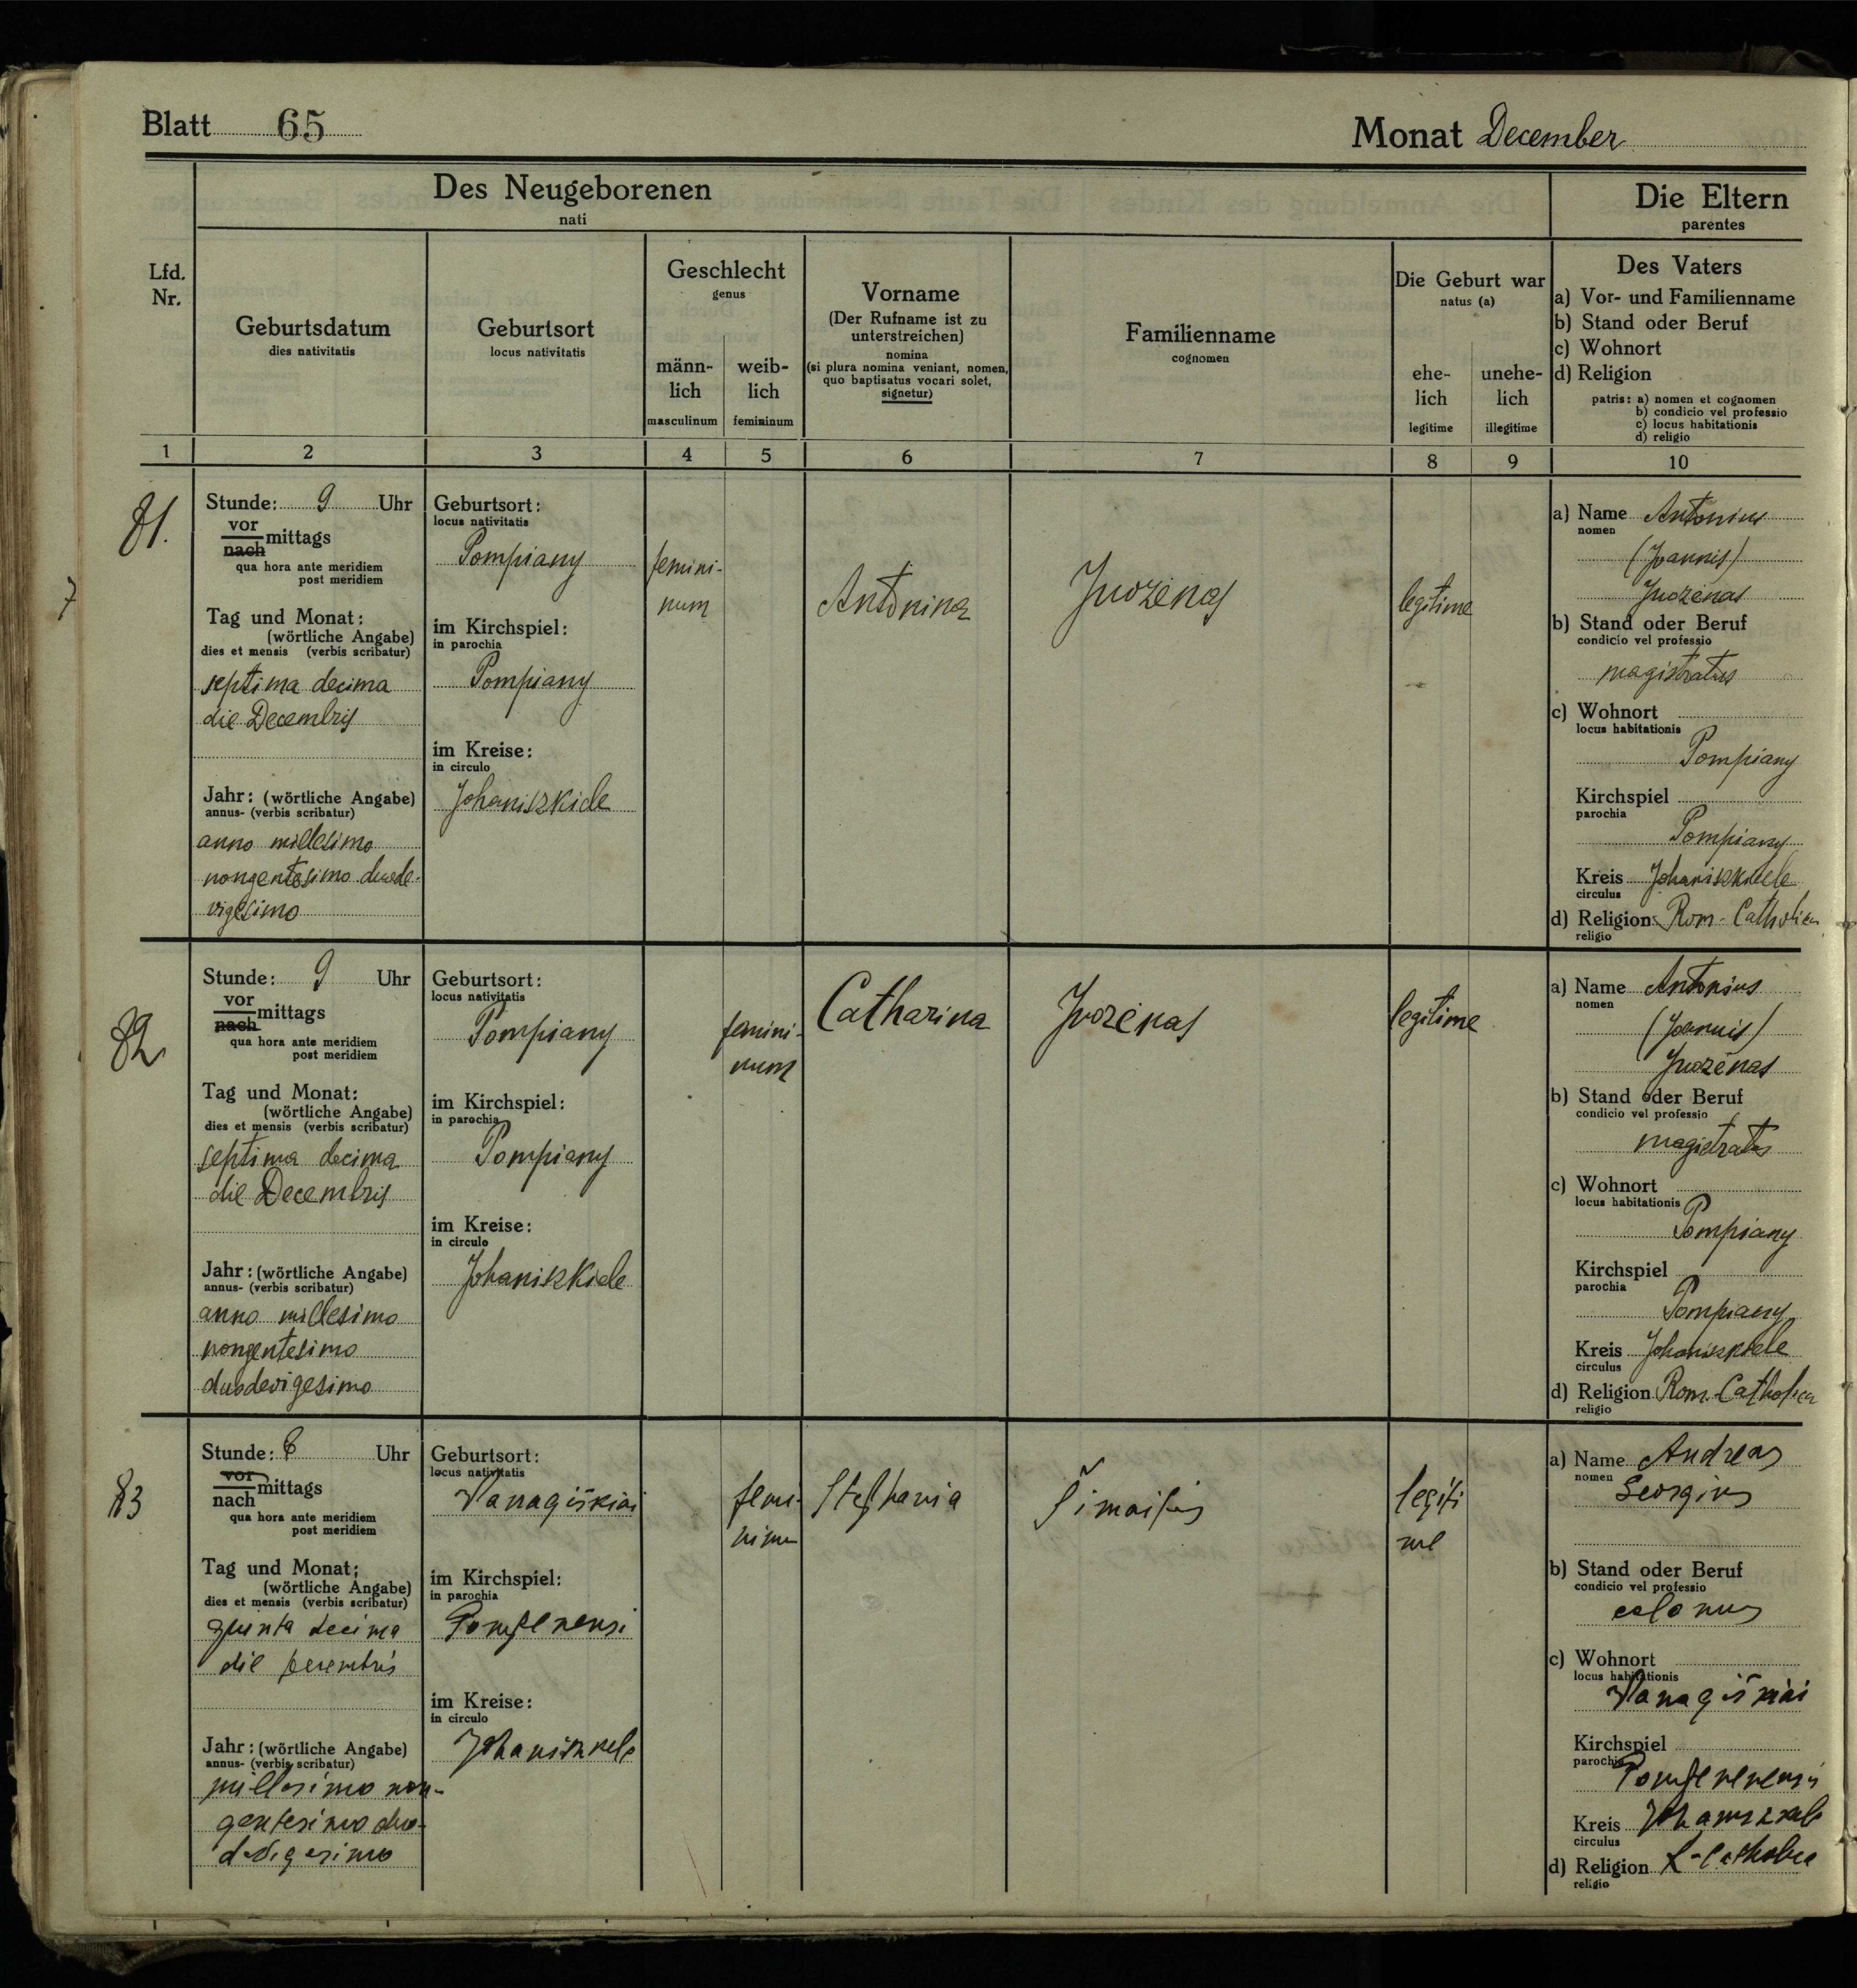 Blatt 65
Monat December
Des Neugeborenen
nati
Die Eltern
parentes
Lfd.
Nr.
Geburtsdatum
dies nativitatis
Geburtsort
locus nativitatis
Geschlecht
genus
männ-
lich
masculinum
weib-
lich
femininum
Vorname
(Der Rufname ist zu
unterstreichen)
nomina
(si plura nomina veniant, nomen,
quo baptisatus vocari solet,
signetur)
Familienname
cognomen
Die Geburt war
natus (a)
ehe-
lich
legitime
unehe-
lich
illegitime
Des Vaters
a) Vor- und Familienname
b) Stand oder Beruf
c) Wohnort
d) Religion
patris: a) nomen et cognomen
b) condicio vel professio
c) locus habitationis
d) religio
1 2 3 4 5 6 7 8 9 10
81.
Stunde: 9 Uhr
vor
nach mittags
qua hora ante meridiem
post meridiem
Tag und Monat:
(wörtliche Angabe)
dies et mensis (verbis scribatur)
septima decima
die Decembris
Jahr: (wörtliche Angabe)
annus- (verbis scribatur)
anno millesimo
nongentesimo duode-
vigesimo
Geburtsort:
locus nativitatis
Pompiany
im Kirchspiel:
in parochia
Pompiany
im Kreise:
in circulo
Johaniszkiele
femini-
num
Antonina
Juozėnas
legitime
a) Name Antonius
nomen
(Joannis)
Juozėnas
b) Stand oder Beruf
condicio vel professio
magistratus
c) Wohnort
locus habitationis
Pompiany
Kirchspiel
parochia
Pompiany
Kreis Johaniszkiele
circulus
d) Religion Rom-Catholica
religio
82
Stunde: 9 Uhr
vor
nach mittags
qua hora ante meridiem
post meridiem
Tag und Monat:
(wörtliche Angabe)
dies et mensis (verbis scribatur)
septima decima
die Decembris
Jahr: (wörtliche Angabe)
annus- (verbis scribatur)
anno millesimo
nongentesimo
duodevigesimo
Geburtsort:
locus nativitatis
Pompiany
im Kirchspiel:
in parochia
Pompiany
im Kreise:
in circulo
Johaniszkiele
femini-
num
Catharina
Juozėnas
legitime
a) Name Antonius
nomen
(Joannis)
Juozėnas
b) Stand oder Beruf
condicio vel professio
magistratus
c) Wohnort
locus habitationis
Pompiany
Kirchspiel
parochia
Pompiany
Kreis Johaniszkiele
circulus
d) Religion Rom-Catholica
religio
83
Stunde: Uhr
vor
nach mittags
qua hora ante meridiem
post meridiem
Tag und Monat:
(wörtliche Angabe)
dies et mensis (verbis scribatur)
quinta decima
die Decembris
Jahr: (wörtliche Angabe)
annus- (verbis scribatur)
millesimo non-
gentesimo duo-
devigesimo
Geburtsort:
locus nativitatis
Vanagiškiai
im Kirchspiel:
in parochia
im Kreise:
in circulo
Stephania
legiti
me
a) Name Andreas
nomen
Georgius
b) Stand oder Beruf
condicio vel professio
colonus
c) Wohnort
locus habitationis
Vanagiškiai
Kirchspiel
parochia
Kreis
circulus
d) Religion R-Catholica
religio